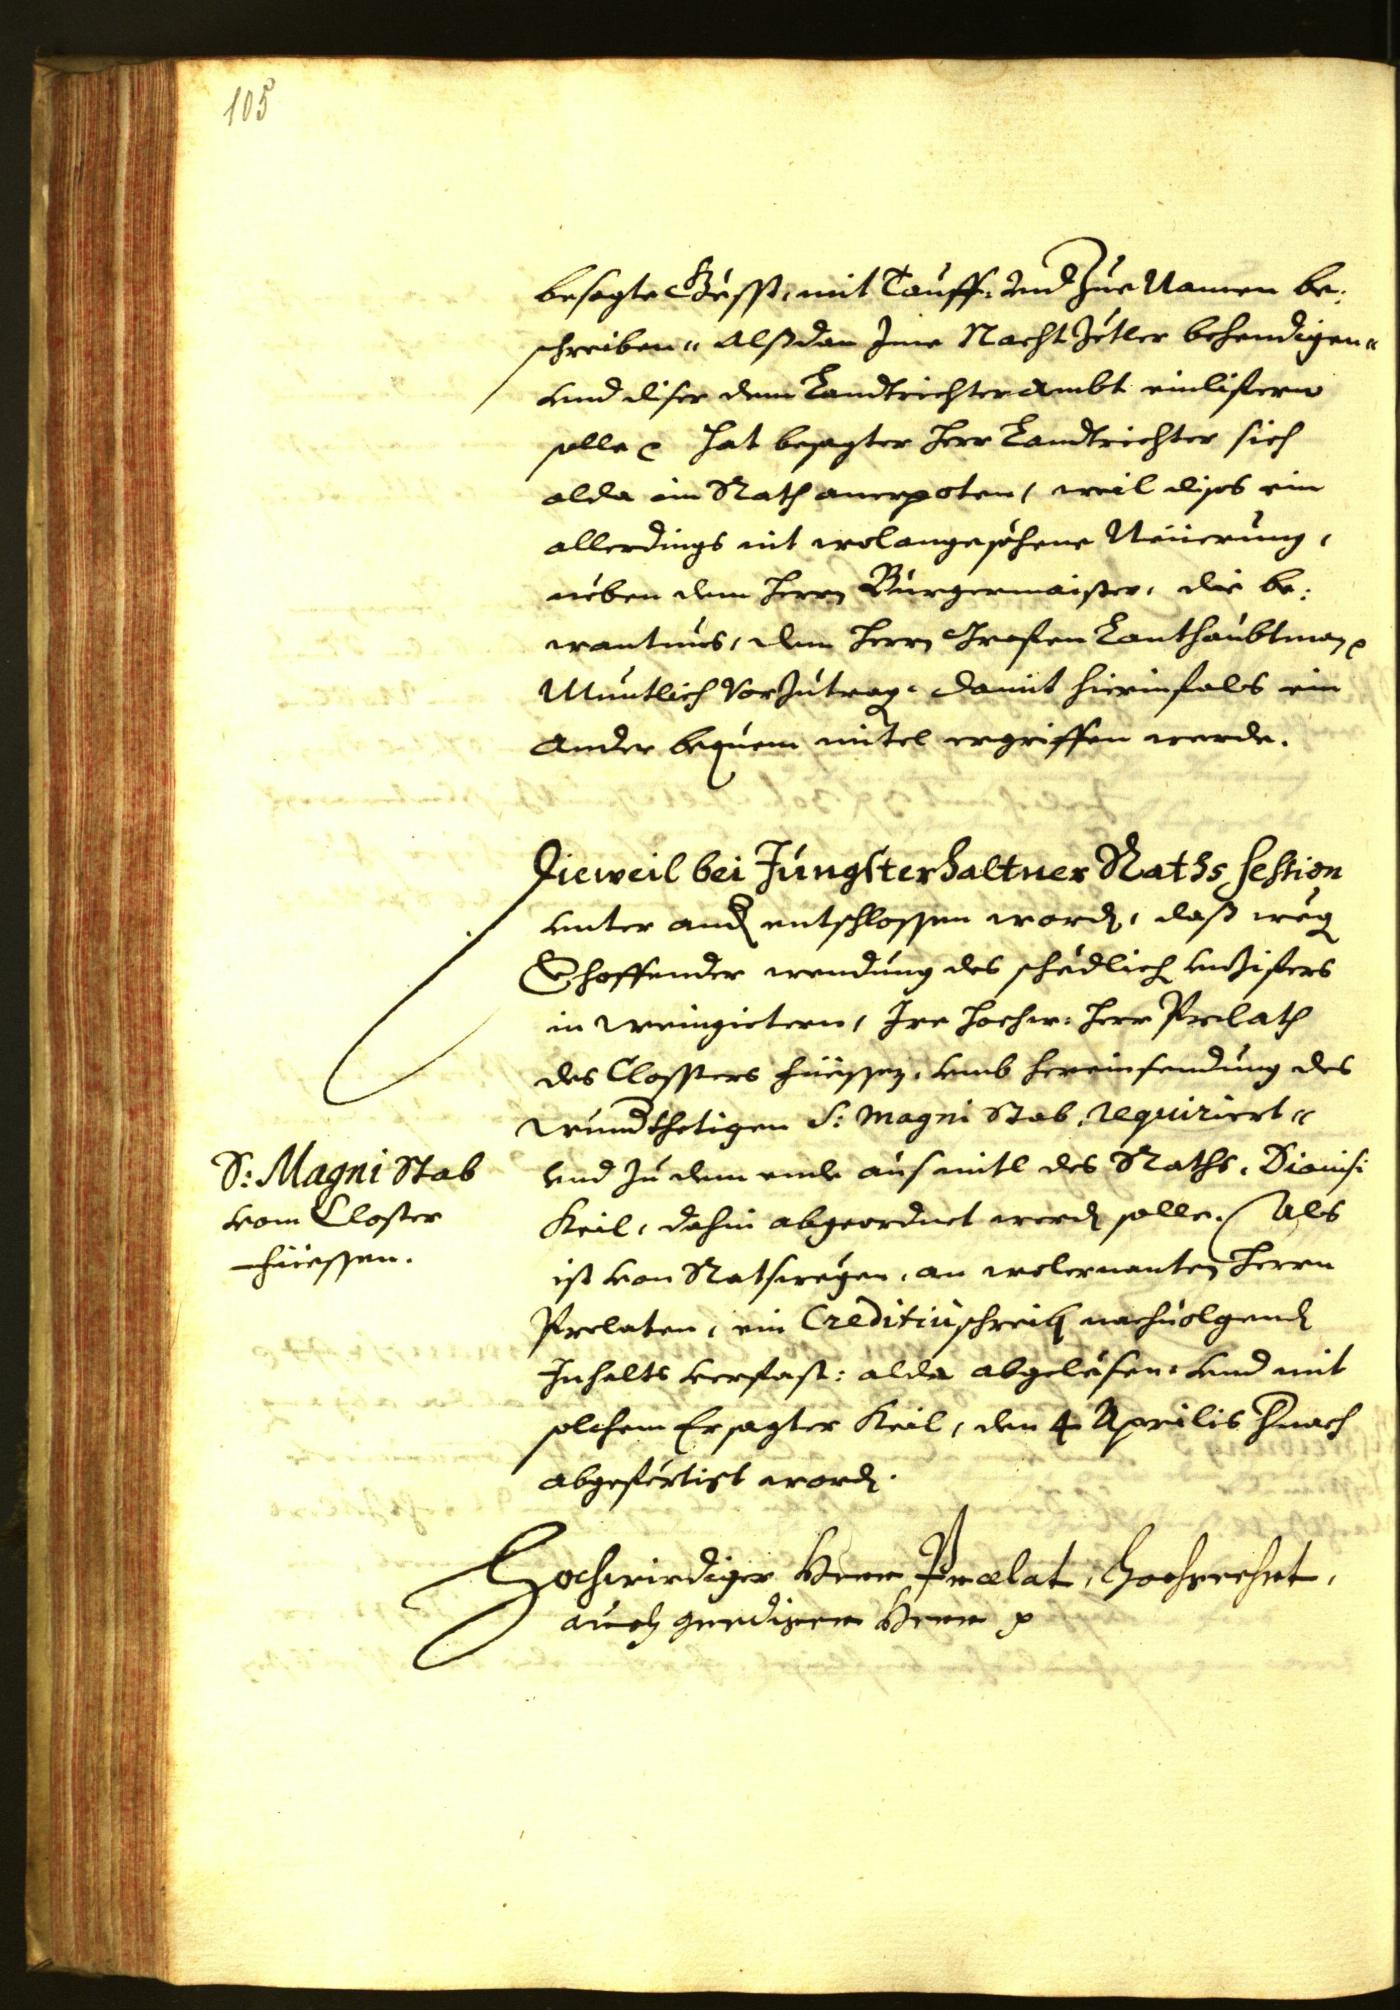 105
besagte Gässt, mit Tauff: und Zue Namen be:
schreiben" alßdan Jme Nacht Zetler behendigen"
und diser dem Landtrichter Ambt einlifern
solle hat besagter Herr Landtrichter sich
alda im Rath anerpoten, weil dises ein
allerdings nit wolangesöhene Neüerung,
neben dem Herrn Burgermaister, die be:
wantnus, dem Herrn Grafen Lanthaubtman
Muntlich Vorzutrag. damit hierinfals ein
Ander bequem mitel ergriffen werde.
Dieweil bei Jüngsterhaltner Raths session
unter and entschlossen word, daß weg
Verhoffender wendung des schedlich unzifers
in weingietern, Jre Hochw: Herr Prelath
des Clossters Füessen, umb hereinsendung des
wundthetigen S: Magni Stab, requiriert"
S: Magni Stab
vom Closter
Füessen.
und zu dem ende aus mitl des Raths, Dionisi
Keil, dahin abgeordnet werd solle. Als
ist von Ratswegen, an wolernanten Herrn
Prelaten, ein Creditiu schreib nachuolgend
Inhalts verfast: alda abgelesen, und mit
solchem Ersagter Keil, den 4 Aprilis hernach
abgefertigt word.
Hochwirdiger Herr Prælat, Hochgeehrt,
auch gnediger Herr